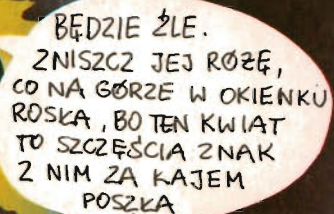 BĘDZIE ŹLE.
ZNISZCZ JEJ RÓŻĘ,
CO NA GÓRZE W OKIENKU
ROSŁA, BO TEN KWIAT
TO SZCZĘŚCIA ZNAK
Z NIM ZA ŁAJEM
POSZŁA